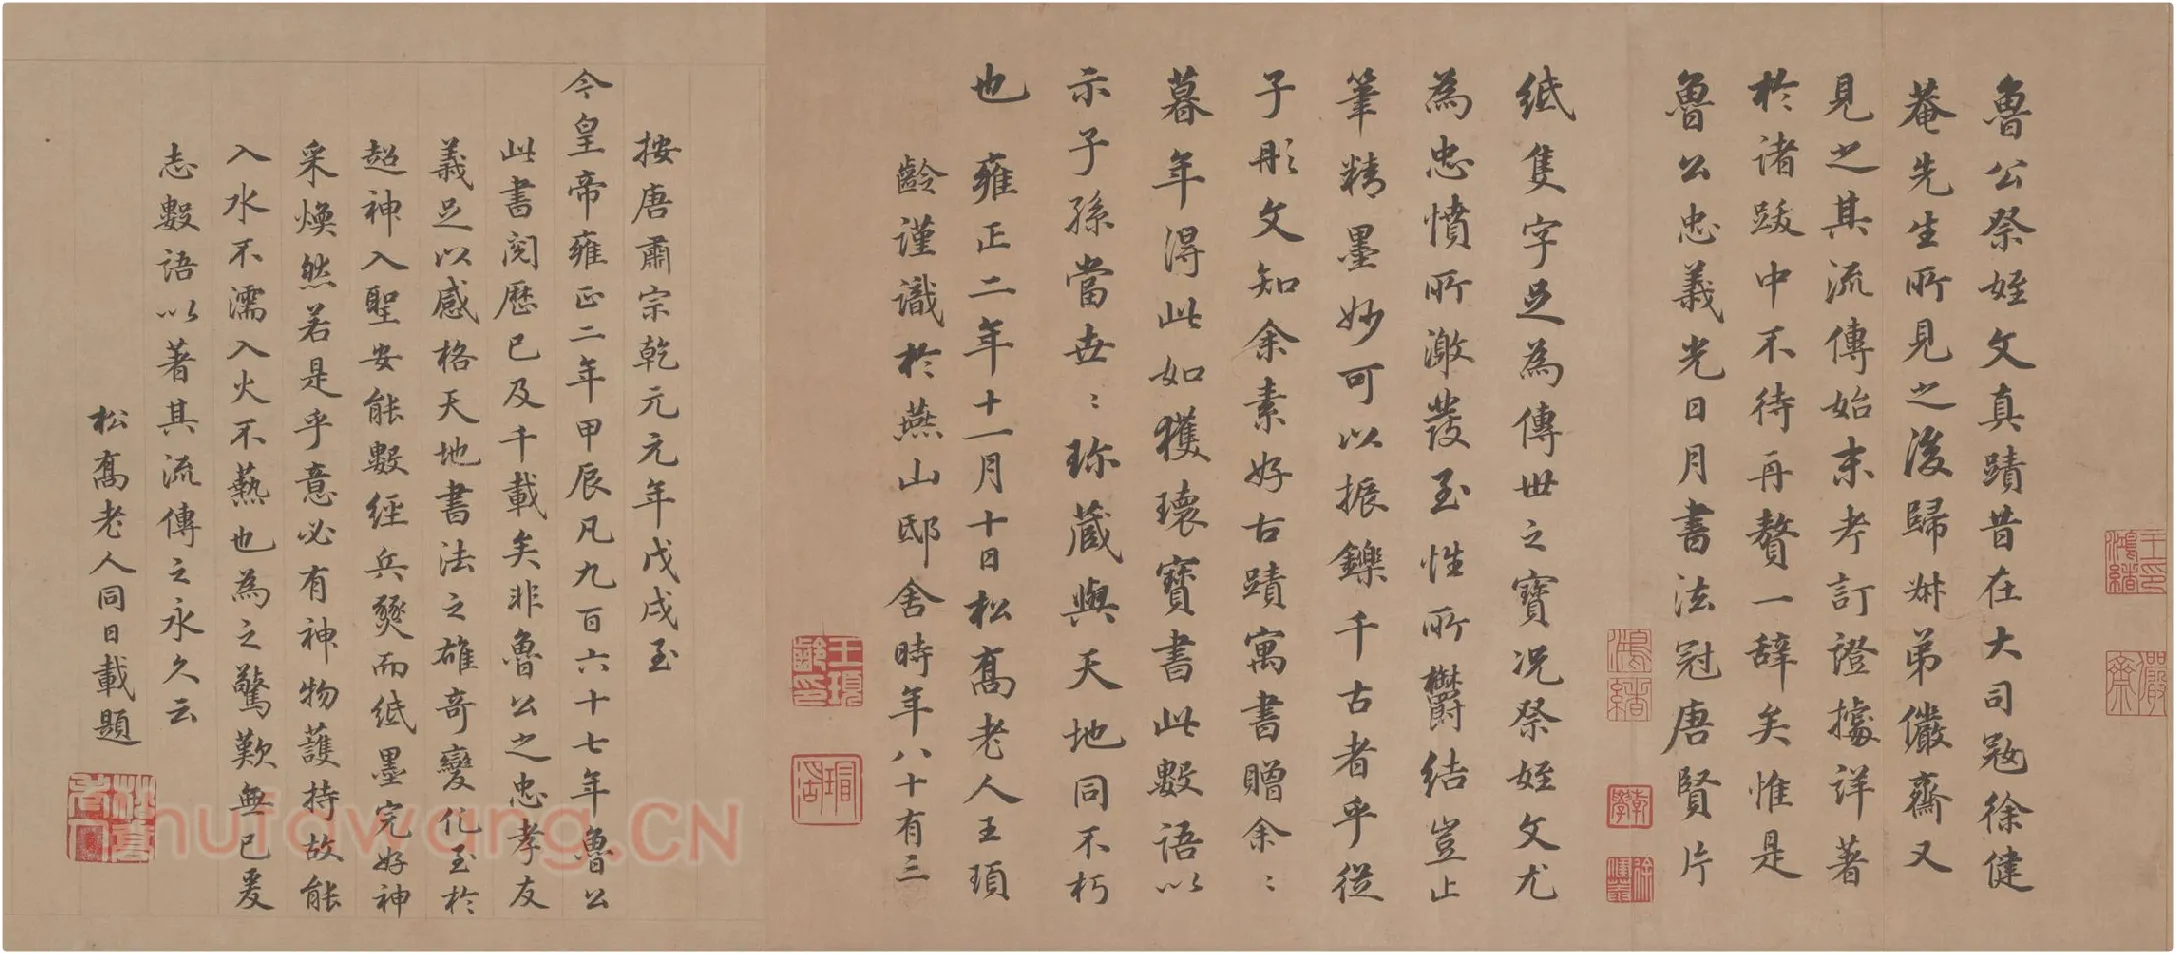 魯公祭姪文真蹟昔在大司寇徐健
菴先生所見之後歸舛弟儼齋又
見之其流傳始末考訂證據詳著
於諸跋中不待再贅一辞矣惟是
魯公忠義光日月書法冠唐賢片
紙隻字足為傳世之寶況祭姪文尤
為忠憤所激發至性所欝結豈止
筆精墨妙可以振鑠千古者乎從
子彤文知余素好古蹟寓書贈余〻
暮年得此如獲瓌寶書此數語以
示子孫當世〻珍藏與天地同不朽
也雍正二年十一月十日松喬老人王頊
齡謹識於燕山邸舍時年八十有三
按唐肅宗乾元元年戊戌至
今皇帝雍正二年甲辰凡九百六十七年魯公
此書閱歷已及千載矣非魯公之忠孝友
義足以感格天地書法之雄奇變化至於
超神入聖安能數經兵燹而紙墨完好神
采煥然若是乎意必有神物護持故能
入水不濡入火不爇也為之驚歎無已爰
志數語以著其流傳之永久云
松喬老人同日載題
王印鴻緒
儼齋
鴻緒
乾學
王頊齡印
shufawang.CN